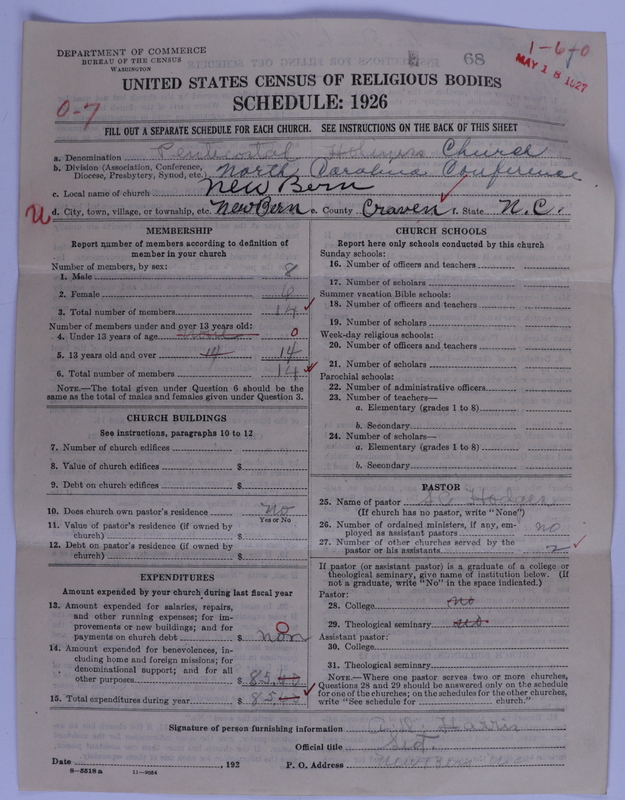 DEPARTMENT OF COMMERCE
BUREAU OF THE CENSUS
WASHINGTON
68
1-6-0
MAY 18 1927
UNITED STATES CENSUS OF RELIGIOUS BODIES
0-7
SCHEDULE: 1926
FILL OUT A SEPARATE SCHEDULE FOR EACH CHURCH. SEE INSTRUCTIONS ON THE BACK OF THIS SHEET
a. Denomination Pentecostal Holiness Church
b. Division (Association, Conference, Diocese, Presbytery, Synod, etc.) North Carolina Conference
c. Local name of church New Bern
U d. City, town, village, or township, etc. New Bern e. County Craven f. State N.C.
MEMBERSHIP
Report number of members according to definition of
member in your church
Number of members, by sex:
1. Male 8
2. Female 6
3. Total number of members 14
Number of members under and over 13 years old:
4. Under 13 years of age 0
5. 13 years old and over 14 14
6. Total number of members 14
NOTE.—The total given under Question 6 should be
same as the total of males and females given under Question 3.
CHURCH BUILDINGS
See instructions, paragraphs 10 to 12
7. Number of church edifices
8. Value of church edifices $
9. Debt on church edifices $
10. Does church own pastor's residence no
Yes or No
11. Value of pastor's residence (if owned by
church) $
12. Debt on pastor's residence (if owned by
church) $
EXPENDITURES
Amount expended by your church during last fiscal year
13. Amount expended for salaries, repairs,
and other running expenses; for im-
provements or new buildings; and for
payments on church debt $ non
0
14. Amount expended for benevolences, in-
cluding home and foreign missions; for
denominational support; and for all
other purposes $ 85.40
15. Total expenditures during year $ 85.40
CHURCH SCHOOLS
Report here only schools conducted by this church
Sunday schools:
16. Number of officers and teachers
17. Number of scholars
Summer vacation Bible schools:
18. Number of officers and teachers
19. Number of scholars
Week-day religious schools:
20. Number of officers and teachers
21. Number of scholars
Parochial schools:
22. Number of administrative officers
23. Number of teachers—
a. Elementary (grades 1 to 8)
b. Secondary
24. Number of scholars—
a. Elementary (grades 1 to 8)
b. Secondary
PASTOR
25. Name of pastor Hodges
(If church has no pastor, write "None")
26. Number of ordained ministers, if any, em-
ployed as assistant pastors no
27. Number of other churches served by the
pastor or his assistants 2
If pastor (or assistant pastor) is a graduate of a college or
theological seminary, give name of institution below. (If
not a graduate, write "No" in the space indicated.)
Pastor:
28. College no
29. Theological seminary no
Assistant pastor:
30. College
31. Theological seminary
NOTE.—Where one pastor serves two or more churches,
Questions 28 and 29 should be answered only on the schedule
for one of the churches; on the schedules for the other churches,
write "See schedule for church."
Signature of person furnishing information Harris
Official title Sect.
Date , 192 P. O. Address New Bern N.C.
8-5518a 11-9054